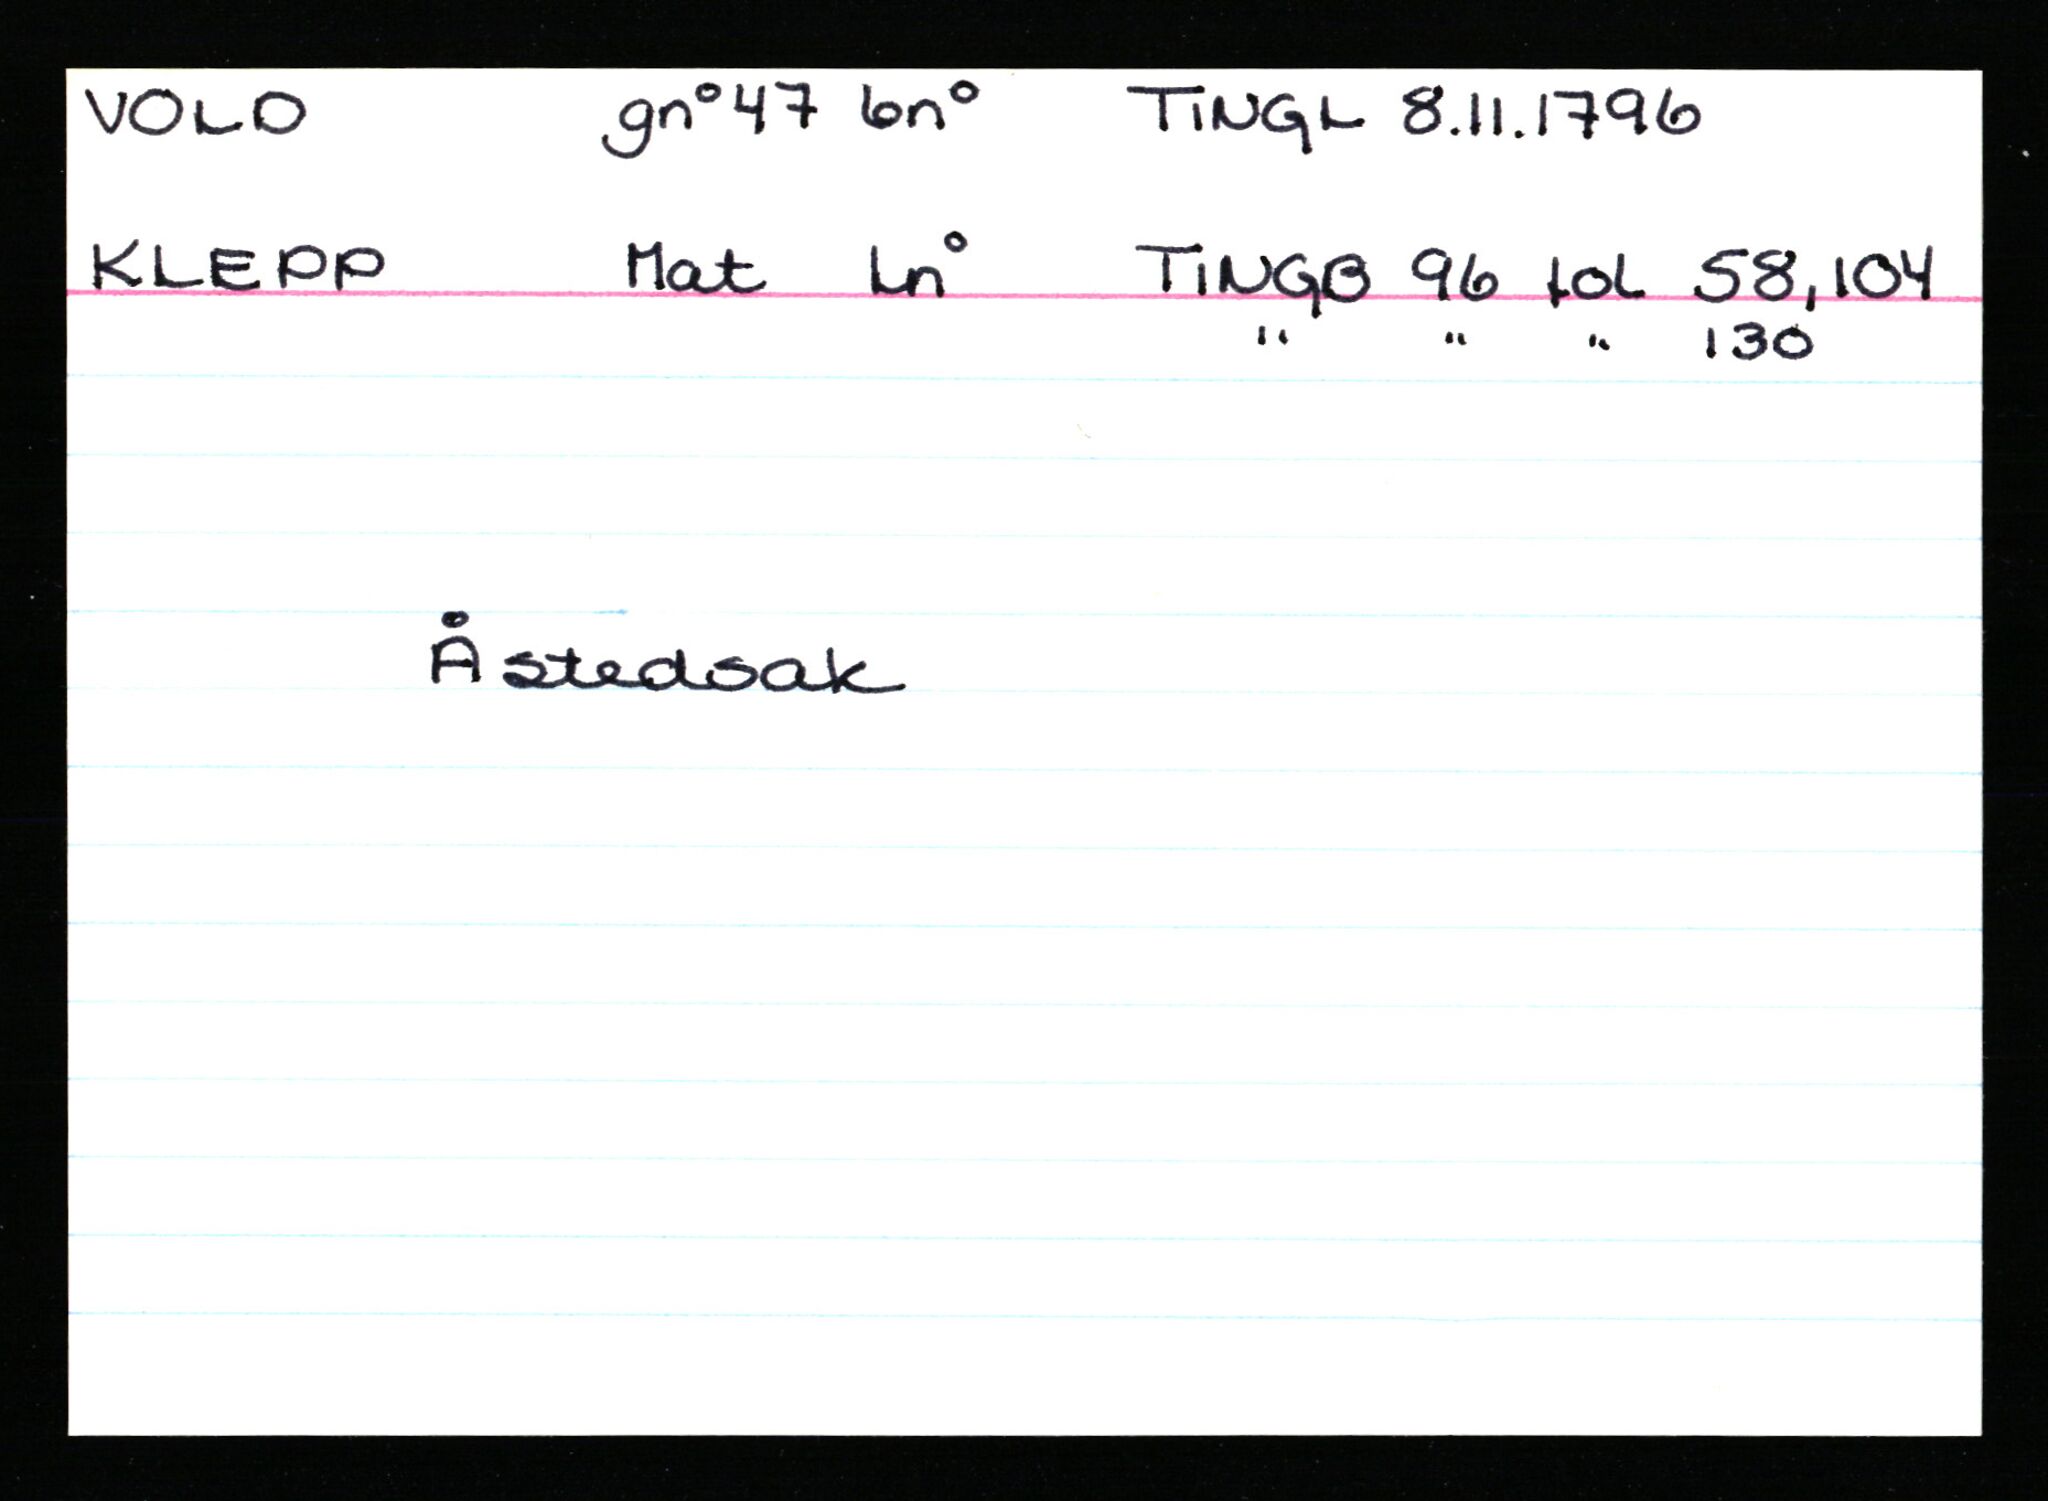 VOLD gn° 47 bn° TINGL 8.11.1796
KLEPP Mat Ln° TINGB 96 fol 58, 104
" " " 130
Åstedsak